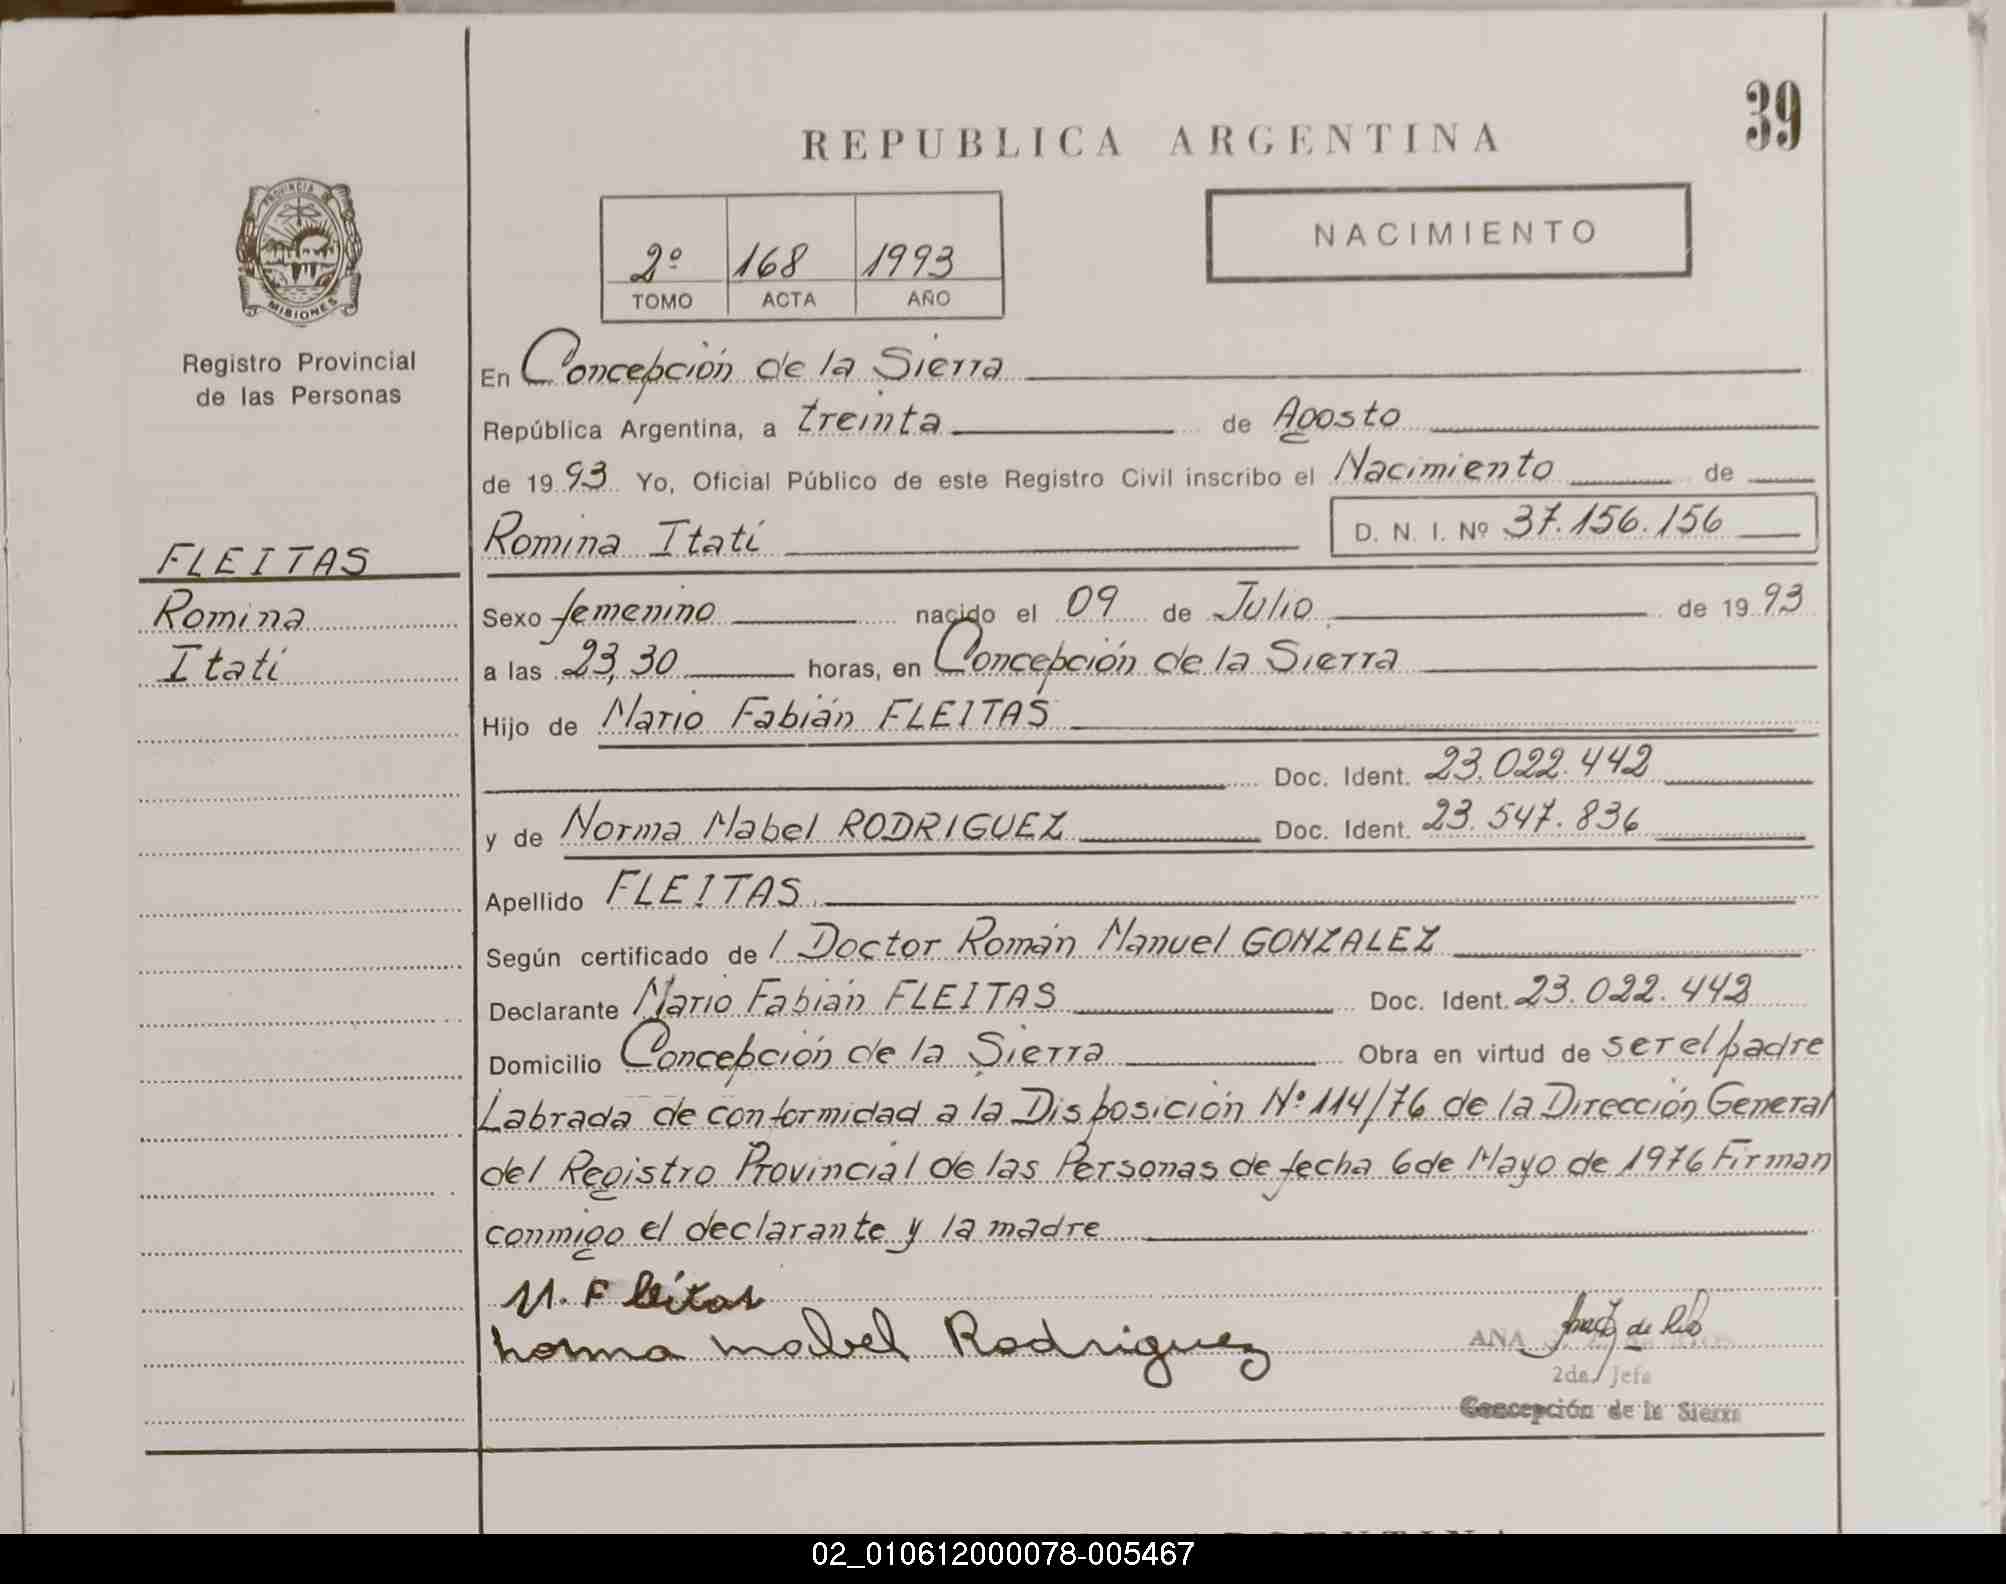 39
REPUBLICA ARGENTINA
PROVINCIA DE
MISIONES
Registro Provincial
de las Personas
2º 168 1993
TOMO ACTA AÑO
NACIMIENTO
En Concepción de la Sierra
República Argentina, a treinta de Agosto
de 1993 Yo, Oficial Público de este Registro Civil inscribo el Nacimiento de
Romina Itatí D. N. I. Nº 37.156.156
FLEITAS
Romina
Itatí
Sexo femenino nacido el 09 de Julio de 1993
a las 23,30 horas, en Concepción de la Sierra
Hijo de Mario Fabián FLEITAS
Doc. Ident. 23.022.442
y de Norma Mabel RODRIGUEZ Doc. Ident. 23.547.836
Apellido FLEITAS
Según certificado de l Doctor Román Manuel GONZALEZ
Declarante Mario Fabián FLEITAS Doc. Ident. 23.022.442
Domicilio Concepción de la Sierra Obra en virtud de ser el padre
Labrada de conformidad a la Disposición Nº 114/76 de la Dirección General
del Registro Provincial de las Personas de fecha 6 de Mayo de 1976 Firman
conmigo el declarante y la madre
M. Fleitas
Norma Mabel Rodriguez
ANA
2da. Jefa
Concepción de la Sierra
02_010612000078-005467